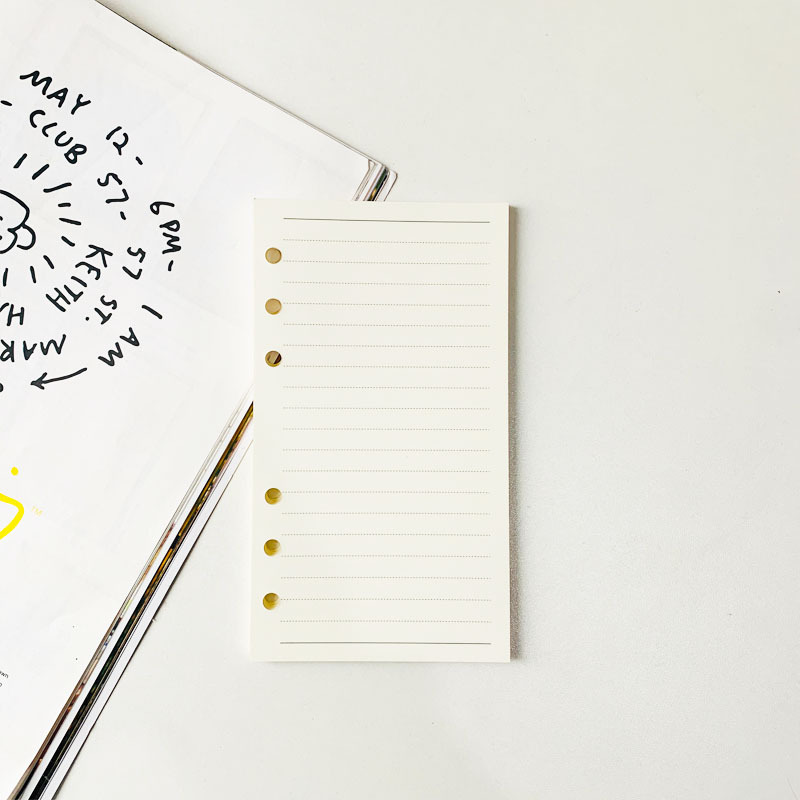 MAY 12 - 6PM -
- CLUB 57 - 57 ST.
KEITH
I AM
MAR
TM